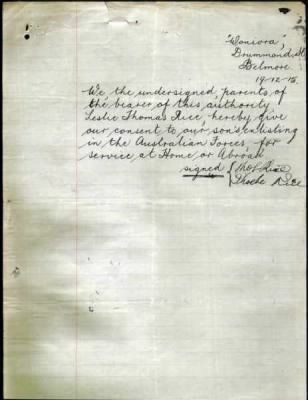 Drummond St
Belmore
19-12-15.
We the undersigned, parents, of
the bearer, of this, authority,
Leslie Thomas Rice, hereby give
our consent to our, son's enlisting
in the Australian Forces, for
service, at Home or Abroad
signed { Thos Rice
Phoebe A Rice